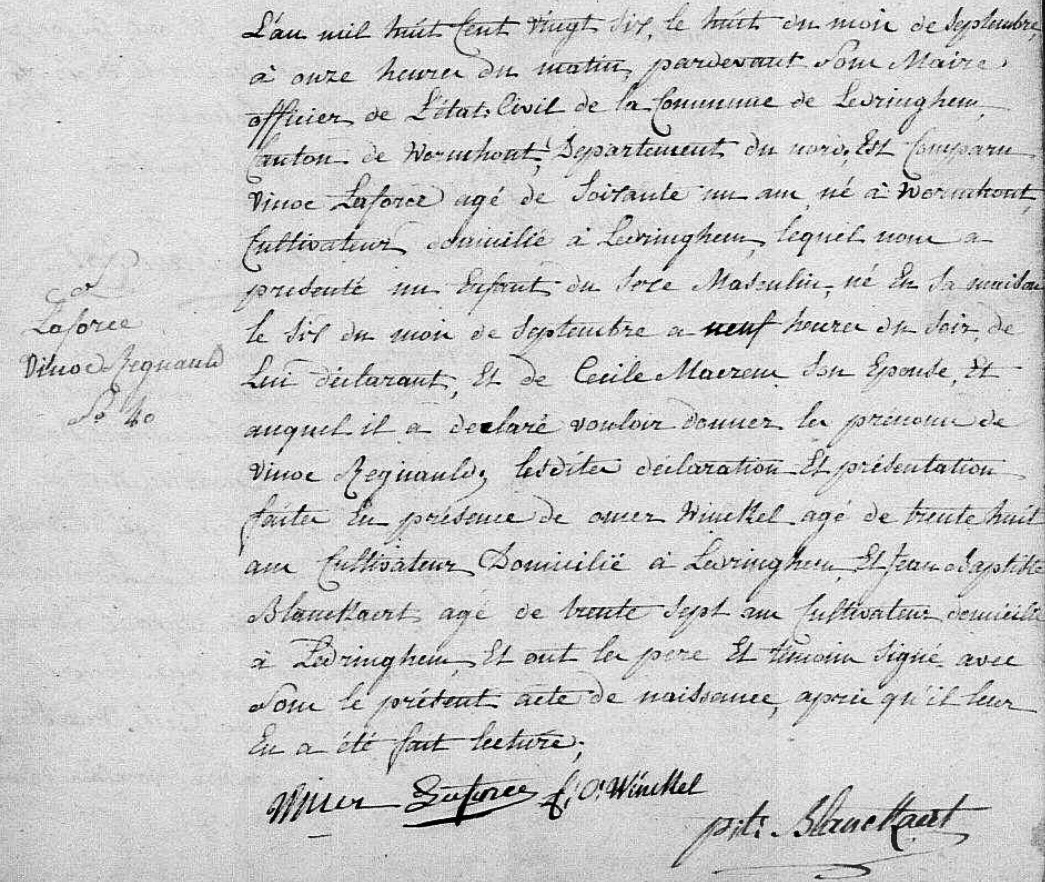 L'an mil huit Cent vingt six, le huit du mois de septembre,
à onze heures du matin, pardevant Nous Maire
officier de L'état Civil de la Commune de Ledringhem
Canton de Wormhout, Departement du nord, Est Comparu
Vinoc Laforce agé de Soixante un ans, né à Wormhout,
Cultivateur domicilié à Ledringhem, lequel nous a
presenté un Enfant du sexe Masculin, né En sa maison
le six du mois de septembre a neuf heures du soir, de
Lui déclarant, Et de Cecile Maerten Son Epouse, Et
auquel il a declaré vouloir donner les prenoms de
Vinoc Regnauld, lesdites déclaration Et présentation
faites En présence de omer Winckel agé de trente huit
ans Cultivateur Domicilié à Ledringhem Et Jean Baptiste
Blanckaert agé de trente sept ans Cultivateur domicilié
à Ledringhem, Et ont les pere Et témoins Signé avec
Nous le présent acte de naissance, après qu'il leur
En a été fait lecture;
Laforce
Vinoc Regnauld
No 40
Laforce O. Winckel
Blanckaert